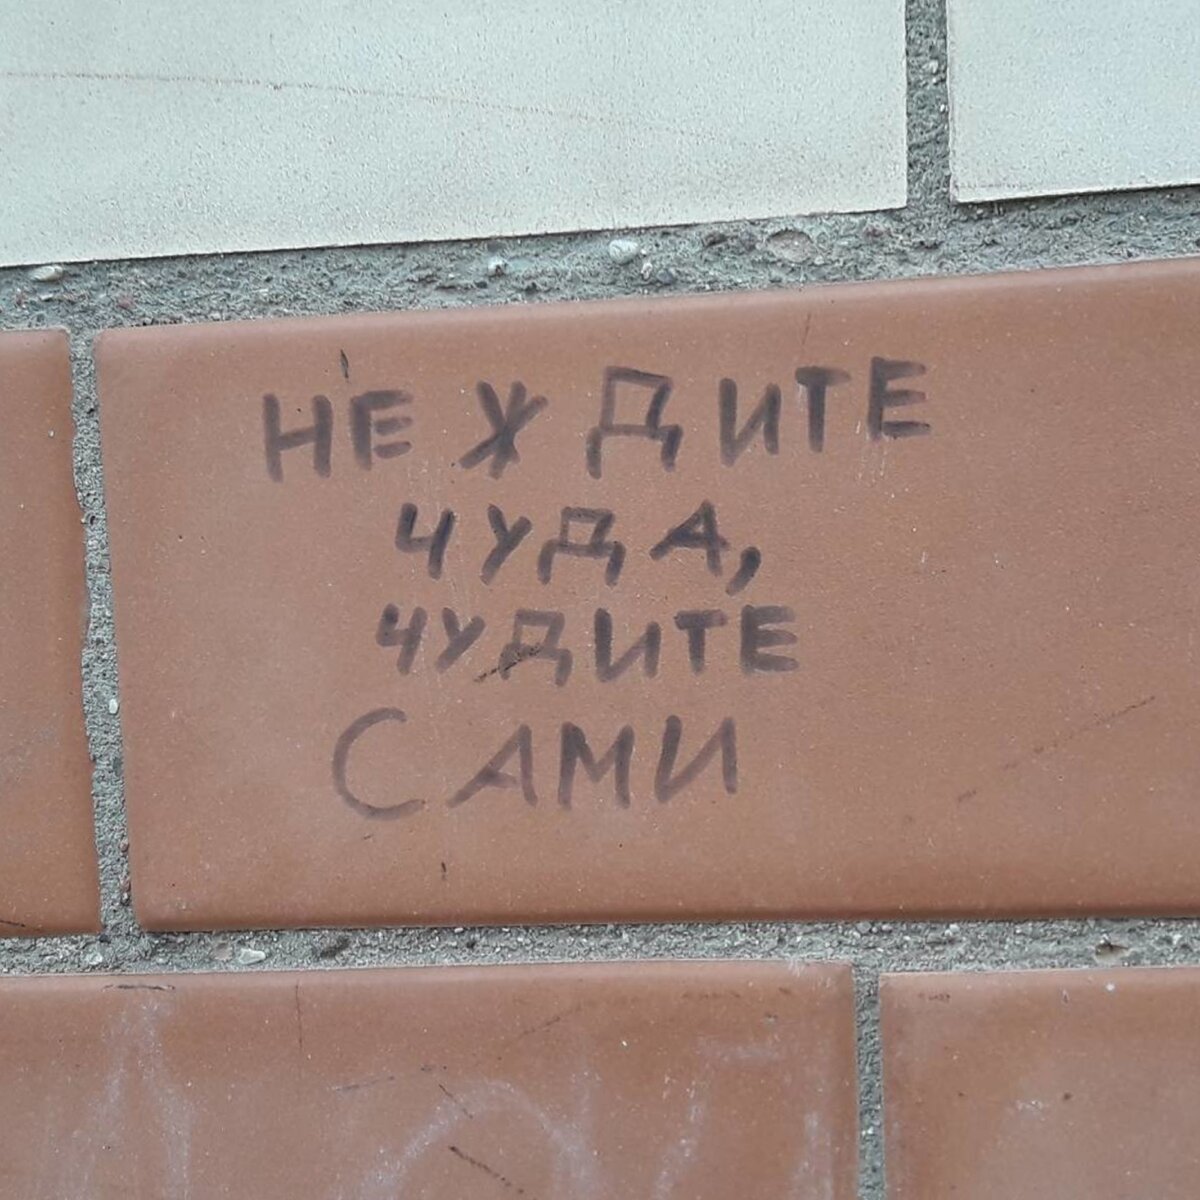 НЕ ЖДИТЕ
ЧУДА,
ЧУДИТЕ
САМИ